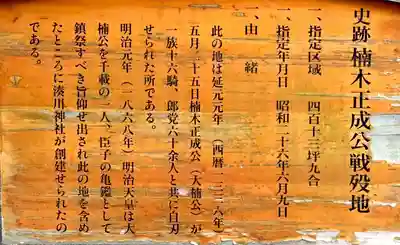 史跡 楠木正成公戦殁地
一、指定区域 四百十三坪九合
一、指定年月日 昭和二十六年六月九日
一、由緒
此の地は延元元年（西暦一三三六年）
五月二十五日楠木正成公（大楠公）が
一族十六騎、郎党六十余人と共に白刃
せられた所である。
明治元年（一八六八年）明治天皇は大
楠公を千載の一人、臣子の亀鑑として
鎮祭すべき旨仰せ出され此の地を含め
たところに湊川神社が創建せられたの
である。